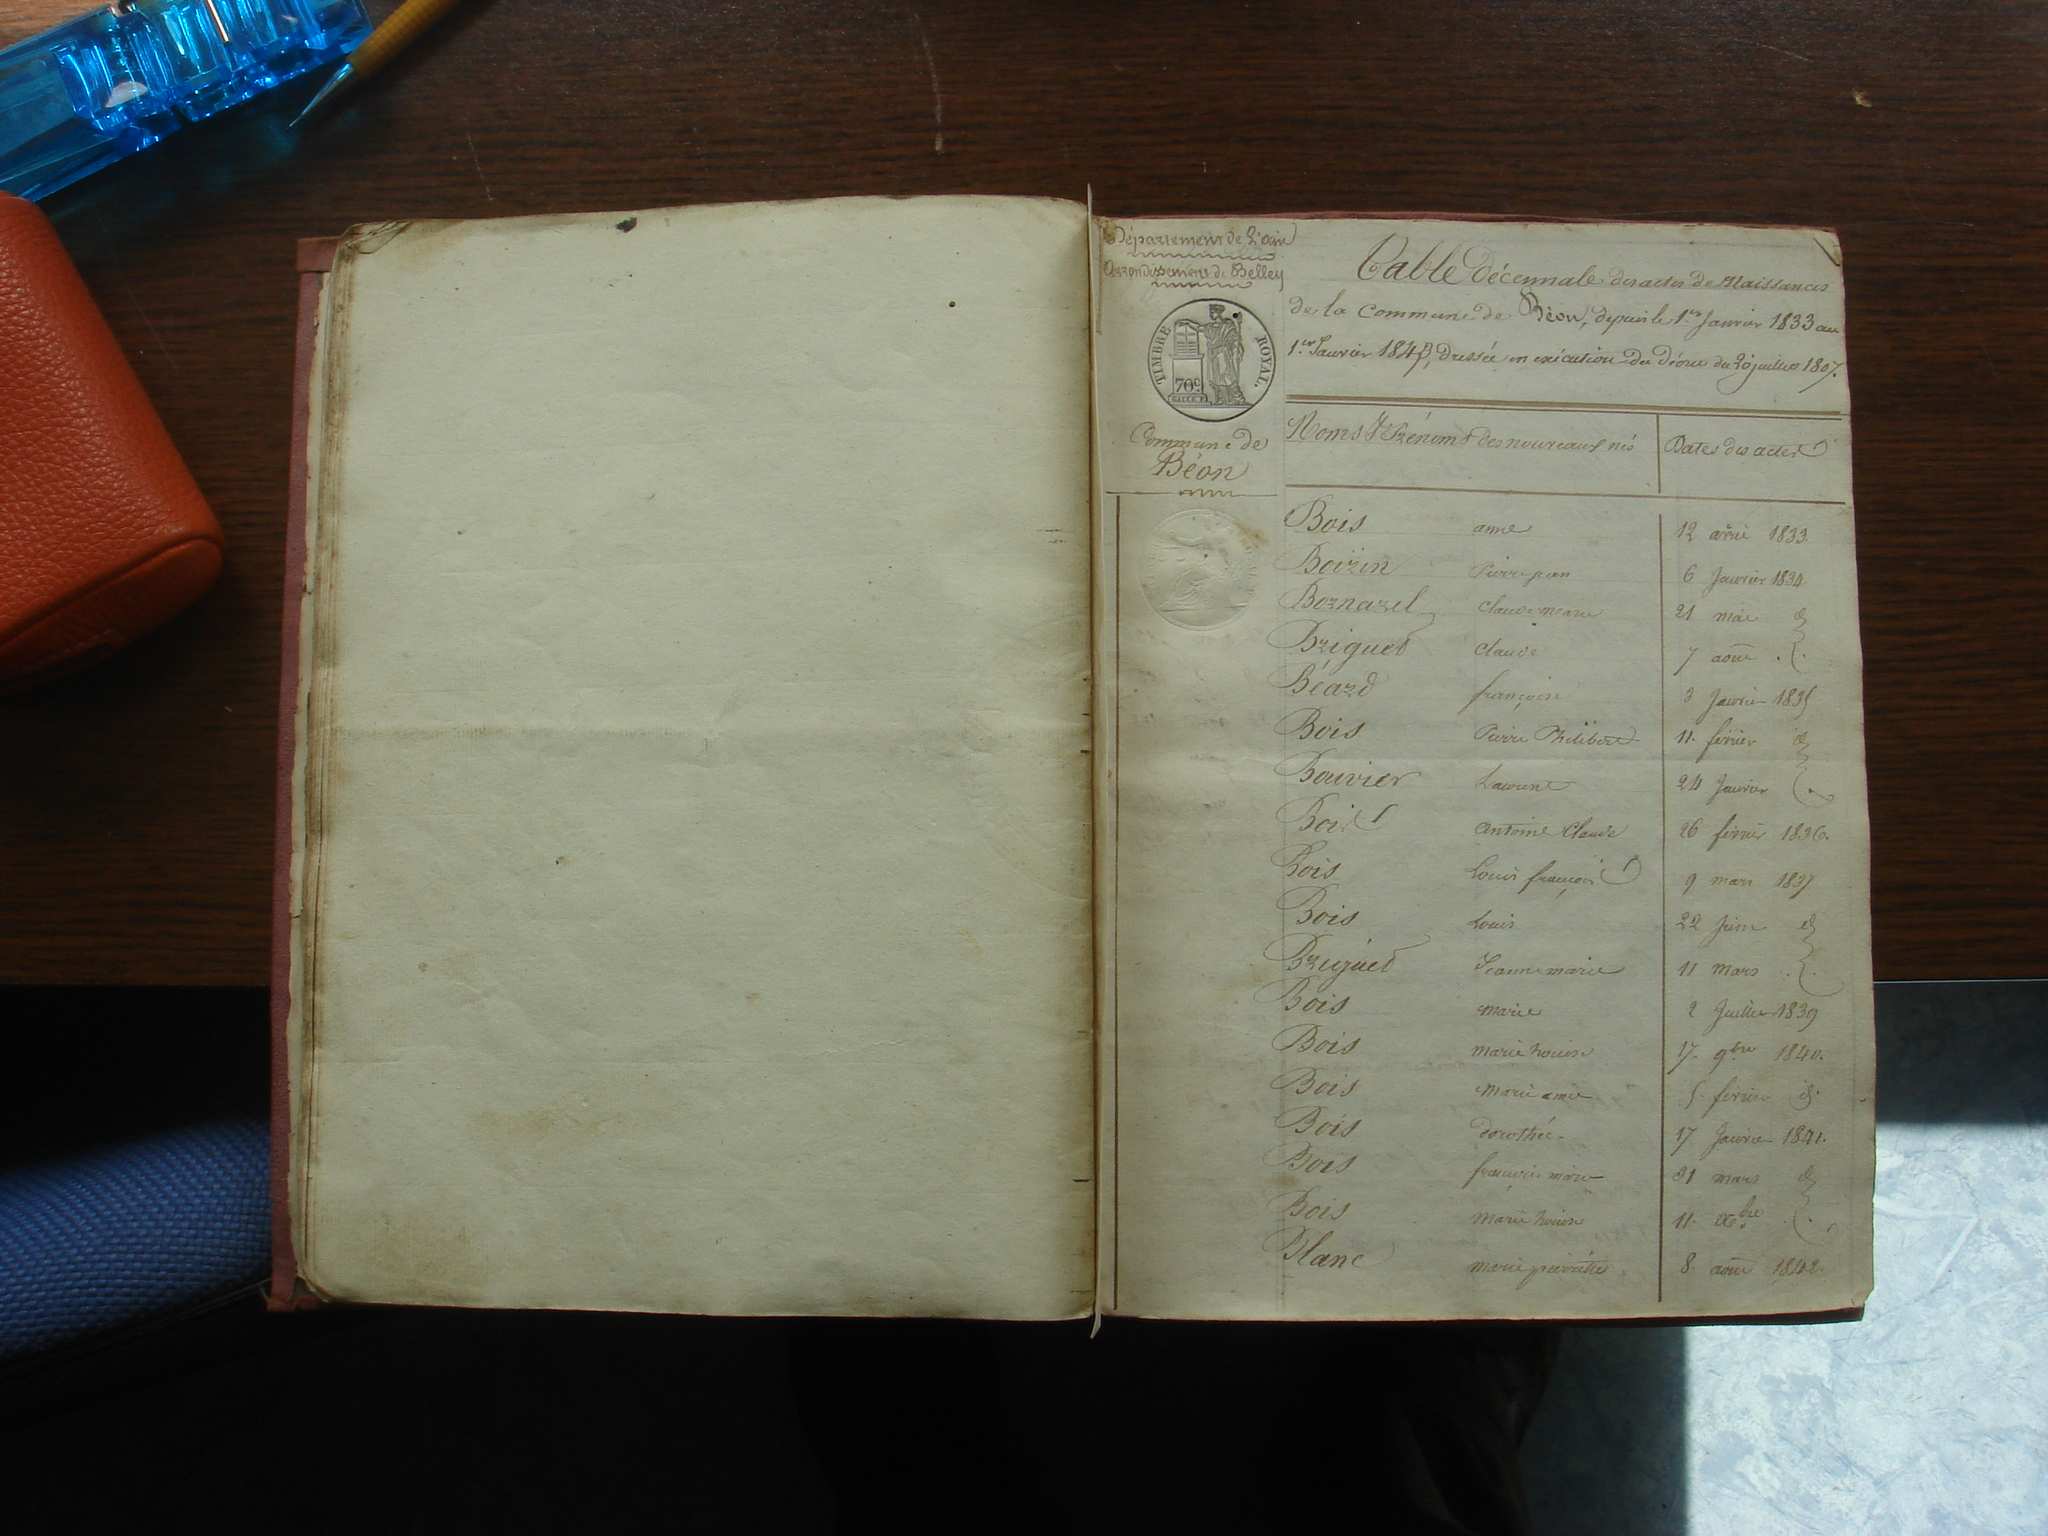 Département de L'ain
Arrondissement de Belley
TIMBRE ROYAL.
70c
Commune de
Béon
Table décennale des actes de Naissances
de la Commune de Béon, depuis le 1er Janvier 1833 au
1er Janvier 1843, dressée en exécution du décret du 20 juillet 1807.
Noms & Prénoms des nouveaux nés Dates des actes
Bois anne 12 avril 1833.
Boizin Pierre jean 6 Janvier 1834
Bornarel Claude marie 21 mai id
Briguet Claude 7 aout . .
Béard françois 3 Janvier 1835
Bois Pierre Philibert 11. février id
Bouvier Laurent 24 Janvier
Bois antoine Claude 26 février 1836.
Bois Louis françois 9 mars 1837
Bois Louis 22 Juin id
Briguet Jeanne marie 11 mars . .
Bois marie 2 Juillet 1839
Bois marie Louise 17. 9bre 1840.
Bois marie 5. février id.
Bois dorothée 17 Janvier 1841.
Bois marie 31 mars id
Bois marie Louise 11. Xbre . .
Blanc marie pierrette 8. aout 1842.